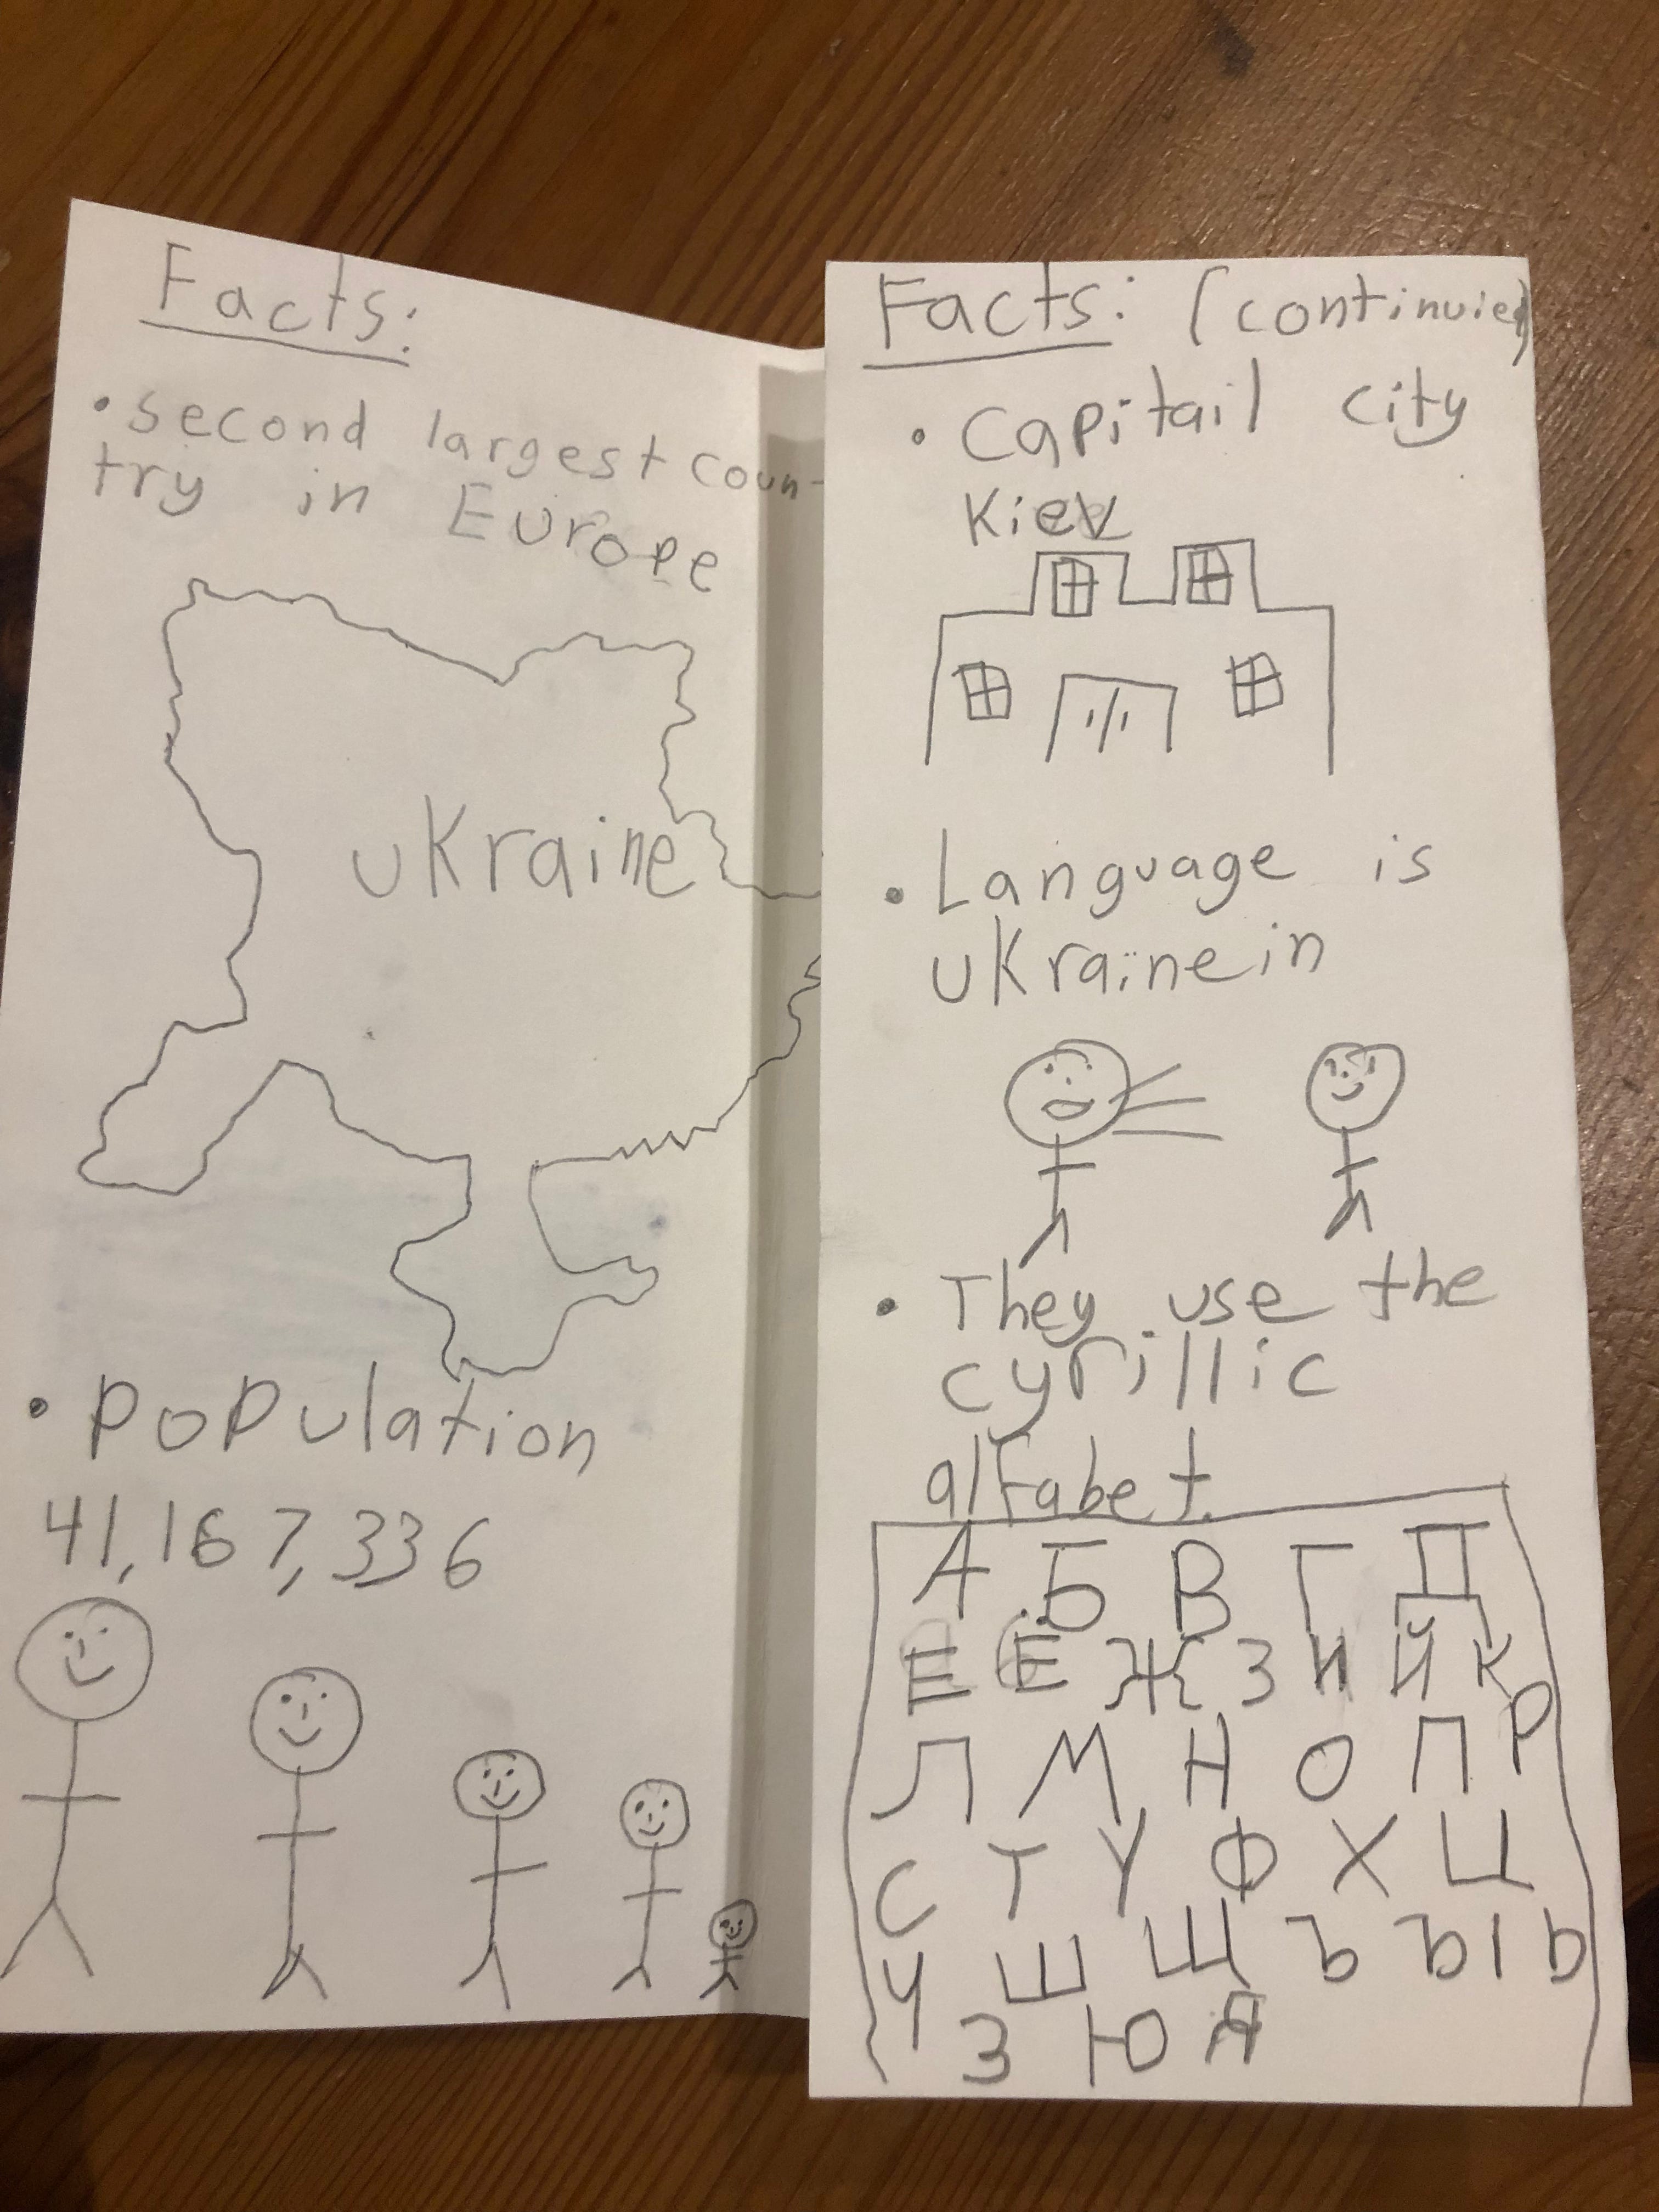 Facts:
• second largest coun-
try in Europe
ukraine
• population
41,167,336
Facts: (continuied)
• Capitail city
Kiev
• Language is
ukrainein
• They use the
cyrillic
alfabet.
А Б В Г Д
Е Ё Ж З И Й К
Л М Н О П Р
С Т У Ф Х Ц
Ч Ш Щ Ъ Ы Ь
З Ю Я